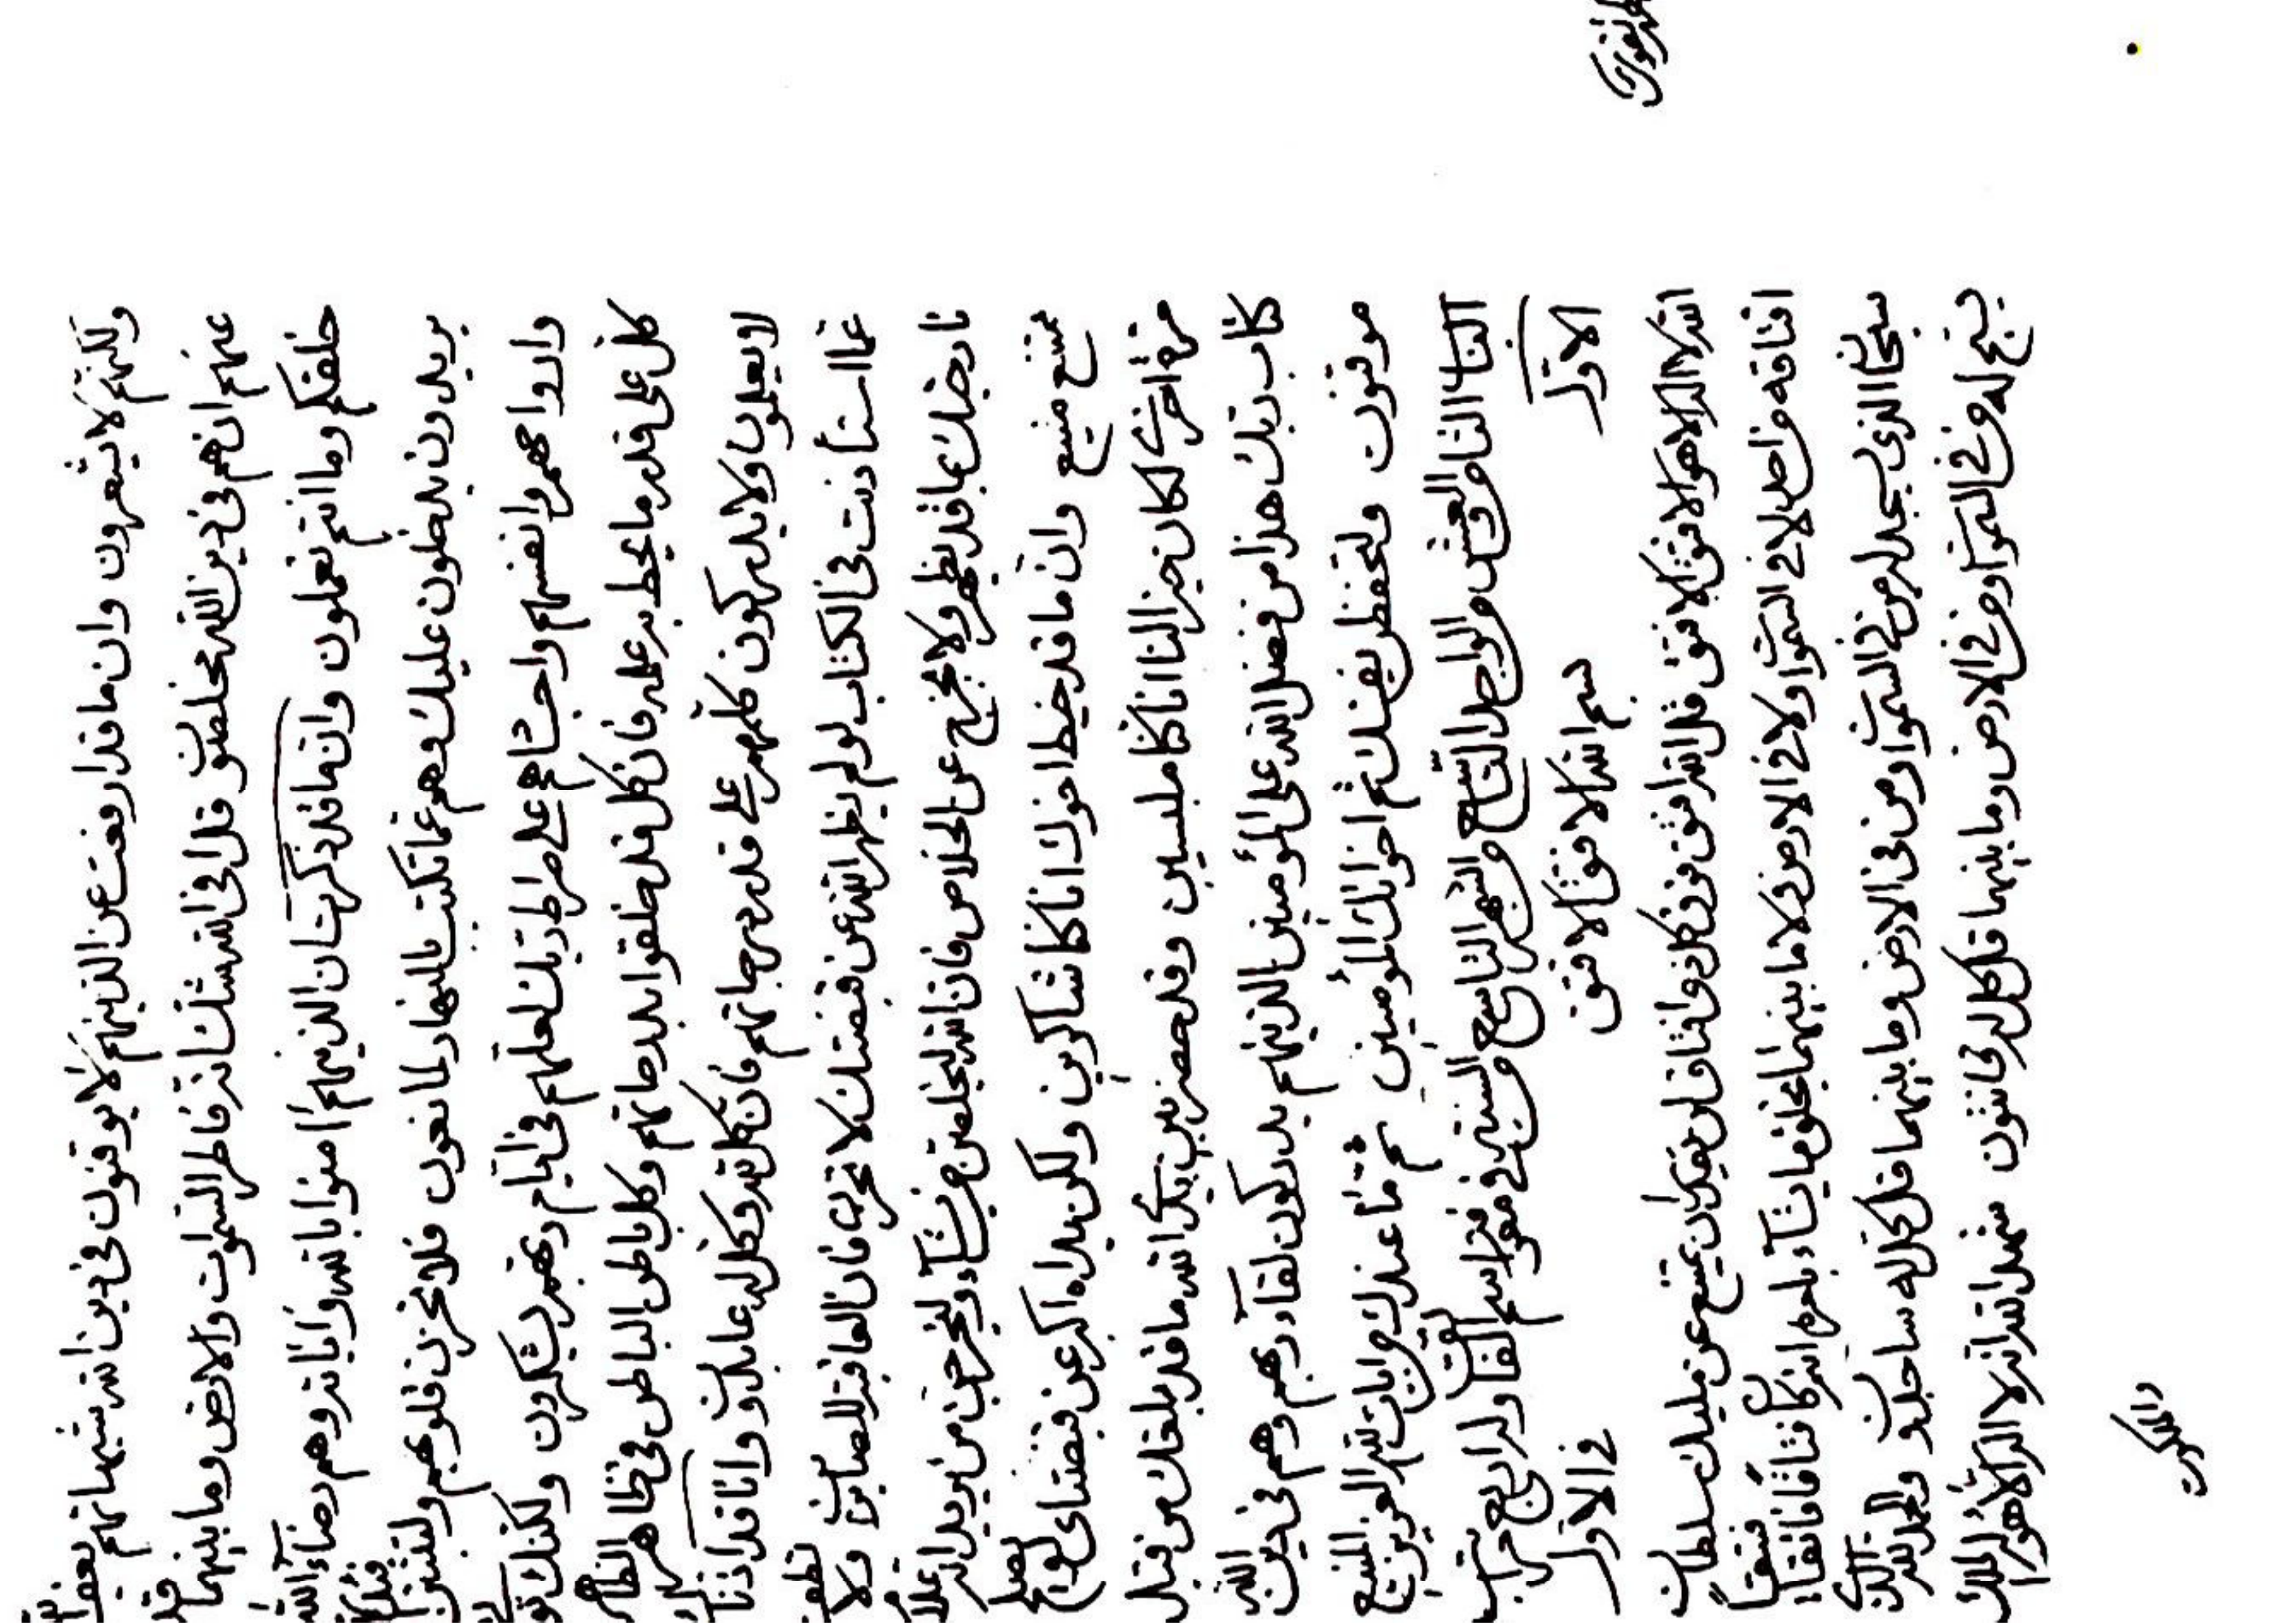 ولكنهم لا يشعرون وان ما قد ارفعت عن الذينهم لا يوقنون في دين الله شبهاتهم
عنهم ان هم في دين الله مخلصون قل افي الله شك انه فاطر السموات والارض وما بينهما
خلقكم وما انتم تعملون وان ما قد ذكرت ان الذينهم امنوا بالله واياته وهم رضاء الله
يريدون يدخلون عليك وهم عما تكتب بالنهار لمانعون فلا تحزن قلوبهم ولتثبتن
وارواحهم وانفسهم واجسادهم على صراط ربك لعلهم في ايام ربهم ليشكرون ولكنك
كل على قدر ما يحط به علمه فان كل قد خلقوا بدرجاتهم وكل باطن الباطن في ظاهر الظاهر
لا يعلمون ولا يدركون كلهم على قدر درجاتهم فان كل له وكل له عابدون وانا قد اذنا
عما استأذنت في الكتاب لو لم يظهر الله عن قبضتك لا تحزن فان العاقبة للصابرين ولا
بما قد يظهر ولا مخرج عن الخلاص فان الله ليخلصن من يشاء وليخرجن من يريد انه علام
ممتنع منيع وان ما قد خيط اخوك انا كنا شاكرين ولكن اكبر عن
مرة اخرى لكان خيرا لنا انا كنا ملبسين وقد حضر بين يدي الله ما قد بلغك من قبل
كتاب ربك هذا من فضل الله على المؤمنين الذينهم يدركون لقاء ربهم وهم في دين الله
موقنون ولتحفظن نفسك ثم اخوانك المؤمنين ثم ما عندك من ايات الله العزيز المنيع
الباب الثاني والعشر من الواحد التاسع من الشهر التاسع من السنة في معرفة اسم وله اربع مراتب
الاول بسم الله الافتق الافتق في الاول
الله لا اله الا هو الافتق الافتق قل الله افتق فوق كل ذي افتاق لن يقدر ان يمتنع عن مليك سلطان
افتاقه من احد لا في السموات ولا في الارض ولا ما بينهما يخلق ما يشاء بامره انه كان فتاقا فاتقا فتيقا
سبحان الذي يسجد له من في السموات ومن في الارض وما بينهما قل كل له ساجدون والحمد لله الذي
يسبح له من في السموات ومن في الارض وما بينهما قل كل له قانتون شهد الله انه لا اله الا هو له الملك
والملكوت